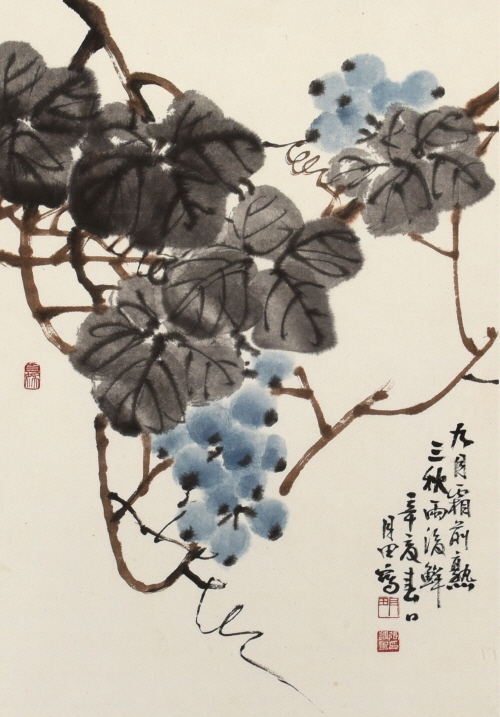 九月霜前熟
三秋雨後鮮
辛亥春日
月田寫